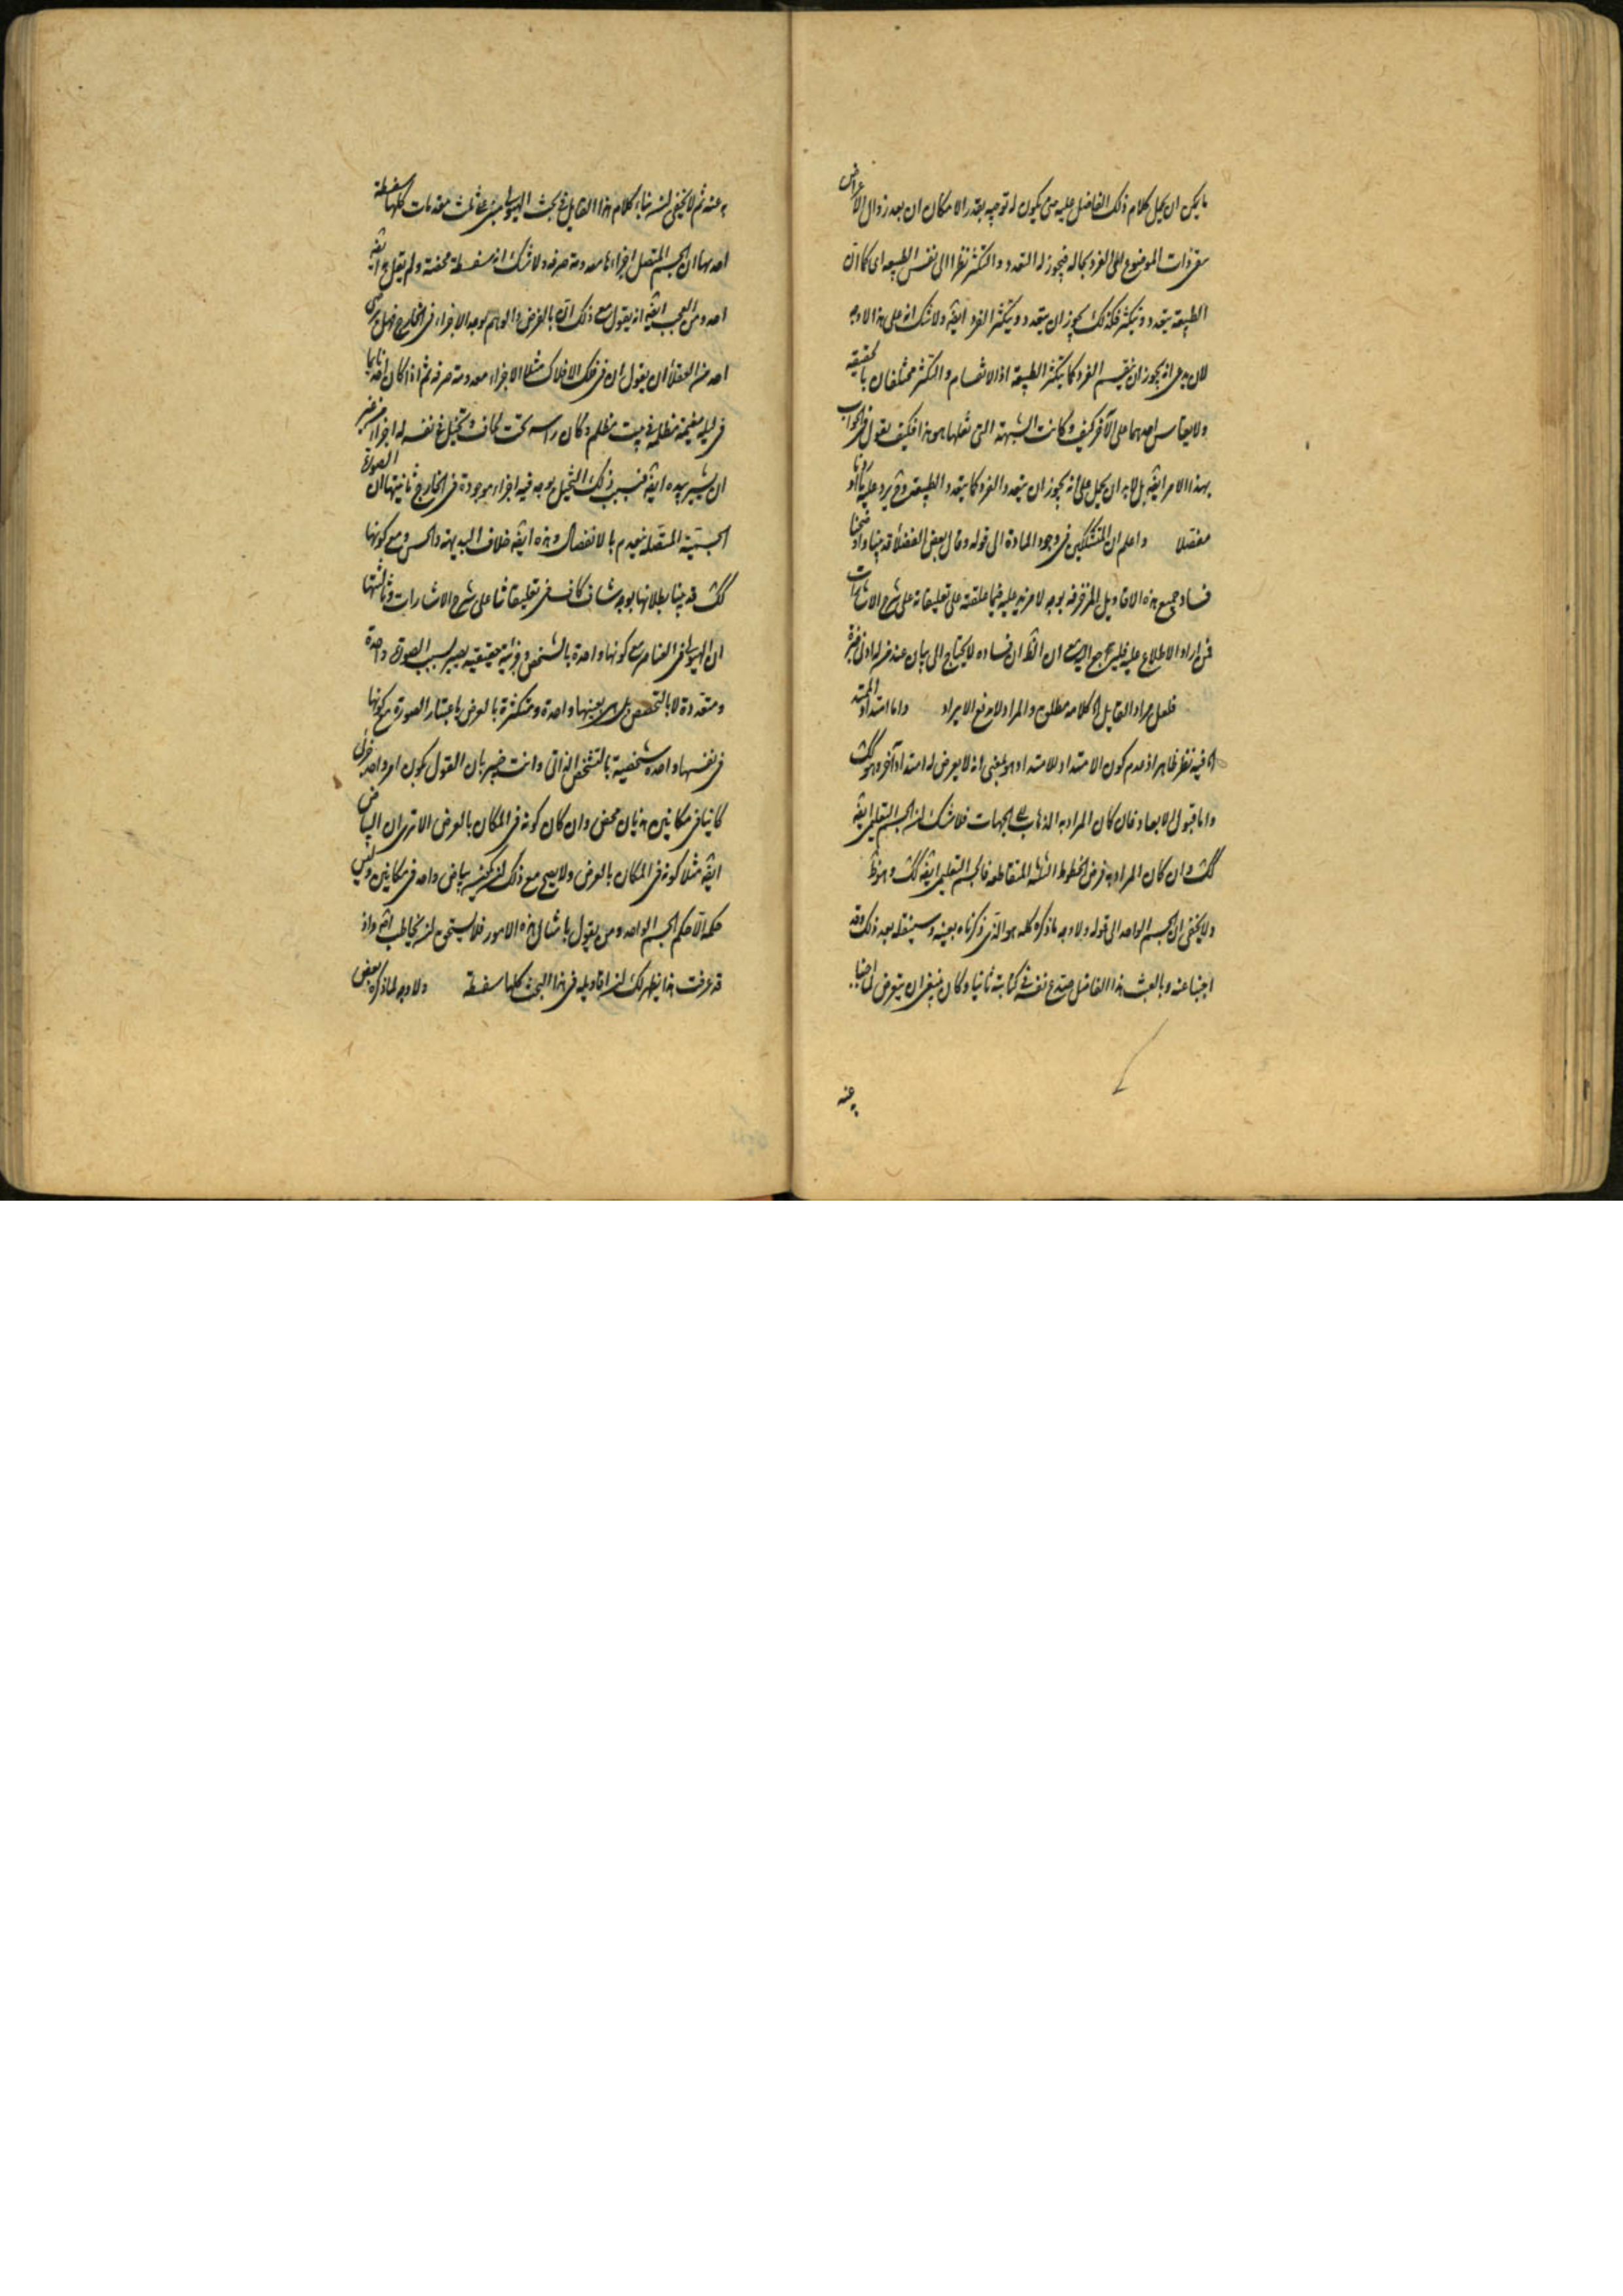 ما يمكن ان يحمل كلام ذلك الفاضل عليه حتى يكون له توجيه بقدر الامكان ان بعد زوال الاعراض
الموضوع للفرد بحاله فيجوز له التعدد والتكثر نظرا الى نفس الطبيعه اى كما ان
الطبيعة يتعدد ويتكثر فكذلك يجوز ان يتعدد ويتكثر الفرد ايضه ولا شك انه على هذا لا وجه
لان يدعى انه يجوز ان ينقسم الفرد كما يتكثر الطبيعة اذ الانقسام والتكثر مختلفان بالحقيقه
ولا يقاس احدهما على الآخر كيف وكانت الشبهة التى نقلها هو هذا فكيف يقول فى الجواب
بهذا الامر ايضه بل لا بد ان يحمل على انه يجوز ان يتعدد الفرد كما يتعدد الطبيعة وح يرد عليه
مفصلا واعلم ان المتشككين فى وجود المادة الى قوله وقال بعض الفضلاء قد بينا واوضحنا
فساد جميع هذه الاقاويل المزخرفه بوجه لا مزيد عليه فيما علقته على تعليقاته على شرح الاشارات
فمن اراد الاطلاع عليه فليرجع اليه مع ان الظ ان فساده لا يحتاج الى بيان عند من له ادنى
فلعل مراد القايل الخ كلامه مطلق والمراد لا يدفع الايراد واما امتداد الممتد
الخ فيه نظر ظاهر اذ عدم كون الامتداد للامتداد هو بمعنى انه لا يعرض له امتداد آخر وهو كك
واما قبول الابعاد فان كان المراد به الذهاب فى الجهات فلا شك ان الجسم التعليمى ايضه
كك وان كان المراد به فرض الخطوط الثلثه المتقاطعه فالجسم التعليمى ايضه كك وهو ظ
ولا يخفى ان الجسم الواحد الى قوله ولا وجه ما ذكره كله هو الذى ذكرناه بعينه وسينقله بعد ذلك وقد
اجبنا عنه وبالعث هذا الفاضل صدع نفسه فى كتابته ثانيا وكان ينبغى ان يتعرض لما اجبنا
به عنه
به عنه ثم لا يخفى ان بناء كلام هذا القايل فى بحث الهيولى مبنى على ثلث مقدمات كلها سفسطة
احديها ان الجسم المتصل اجزاءها معدومة صرفه ولا شك انه سفسطة محضة ولم يقل به ايضه
احد ومن العجب ايضه انه يقول مع ذلك انه بالفرض والوهم يوجد الاجزاء فى الخارج فهل يرضى
احد من العقلاء ان يقول ان فى فلك الافلاك مثلا الاجزاء معدومة صرفه ثم اذا كان احد نايما
فى ليلة مغيمة مظلمة فى بيت مظلم وكان راسه تحت لحاف وتخيل فى نفسه له اجزاء من غير
ان يشير بيده ايضه فبسبب ذلك التخيل يوجد فيه اجزاء موجودة فى الخارج ثانيتها ان الصورة
الجسمية المتصلة ينعدم بالانفصال وهذه ايضه خلاف البديهة والحس ومع كونها
كك قد بينا بطلانها بوجه شاف كاف فى تعليقاتنا على شرح الاشارات وثالثتها
ان الهيولى فى العناصر مع كونها واحدة بالشخص وجزئية حقيقيه يصير بسبب الصورة واحدة
ومتعددة لا بالتشخص بل بعينها واحدة ومتكثرة بالعرض باعتبار الصورة مع كونها
فى نفسها واحده شخصية بالتشخص الذاتى وانت خبير بان القول بكون امر واحد
كاينا فى مكانين هذيان محض وان كان كونه فى المكان بالعرض الا ترى ان البياض
ايضه مثلا كونه فى المكان بالعرض ولا يصح مع ذلك ان يكون بياض واحد فى مكانين وليس
حكمه الا حكم الجسم الواحد ومن يقول بامثال هذه الامور فلا يستحق ان يخاطب واذ
قد عرفت هذا يظهر لك ان اقاويله فى هذا البحث كلها سفسطة ولا وجه لما ذكره بعض